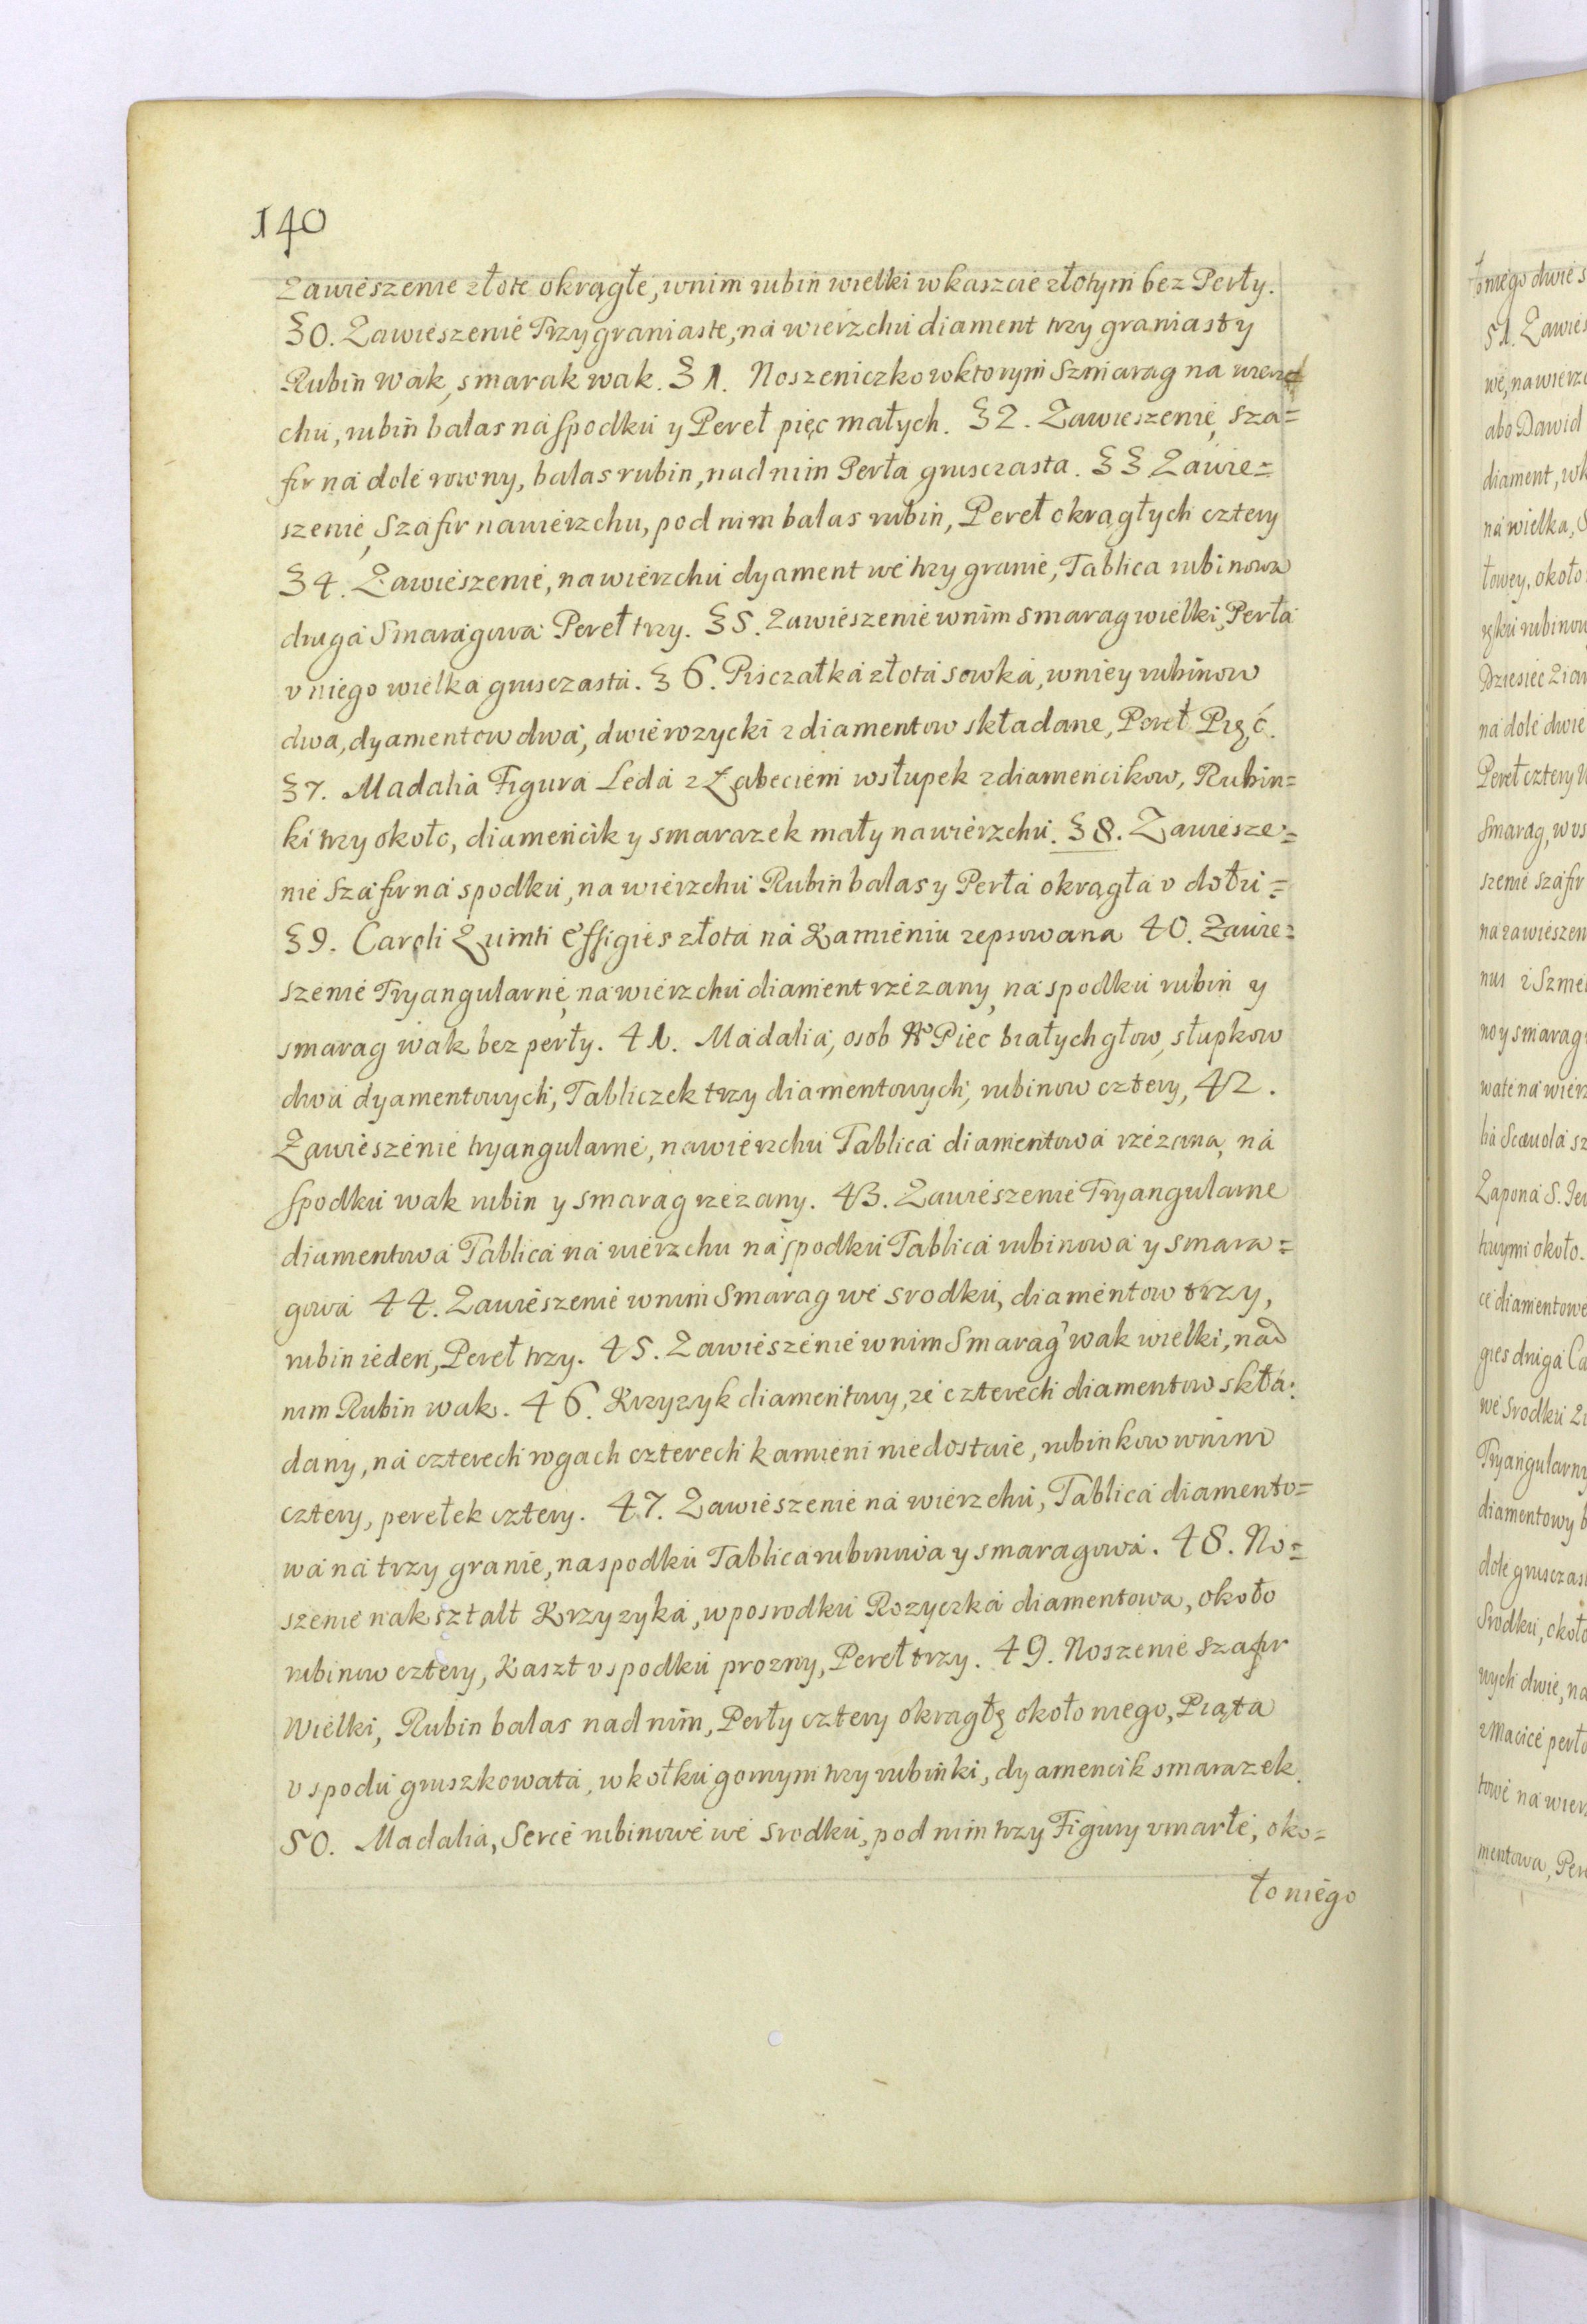 140
Zawieszenie złote okrągłe, wnim rubin wielki wkaszcie złotym bez Perły.
30. Zawieszenie Trzygraniaste, ná wierzchu diament trzy graniasty
Rubin wak, smarak wak. 31. Noszeniczko wktorym Szmarag na wierz
chu, rubin balas ná spodku y Pereł pięc małych. 32. Zawieszenie, sza=
fir ná dole rowny, balas rubin, nad nim Perła grusczasta. 33 Zawie=
szenie, Szafir nawierzchu, pod nim balas rubin, Pereł okrągłych cztery
34. Zawieszenie, na wierzchu dyament we trzy granie, Tablica rubinowa
druga Smaragowa Pereł trzy. 35. Zawieszenie wnim smarag wielki, Perłá
v niego wielka grusczasta. 36. Pisczałká złotá sowká, wniey rubinow
dwa, dyamentow dwá, dwie rozycki z diamentow składane, Pereł Pięć.
37. Madalia Figura Leda z Łabeciem wsłupek zdiamencikow, Rubin=
ki trzy około, diamencik y smarazek mały na wierzchu. 38. Zawiesze=
nie Szafir ná spodku, na wierzchu Rubin balas y Perłá okrągłá v dołu=
39. Caroli Quinti Effigies złotá ná Kamieniu zepsowana 40. Zawie=
szenie Tryangularne, na wierzchu diament rzezany, ná spodku rubin y
smarag wak bez perły. 41. Madalia, osob Piec białychgłow, słupkow
dwá dyamentowych, Tabliczek trzy diamentowych, rubinow cztery, 42.
Zawieszenie tryangularne, nawierzchu Tablicá diamentowá rzezana, ná
spodku wak rubin y smarag rzezany. 43. Zawieszenie Tryangularne
diamentowá Tablicá ná wierzchu ná spodku Tablicá rubinowá y smara=
gowá 44. Zawieszenie wnim Smarag we srodku, diamentow trzy,
rubin ieden, Pereł trzy. 45. Zawieszenie wnim Smarag wak wielki, nad
nim Rubin wak. 46. Krzyzyk diamentowy, ze czterech diamentow skłá=
dany, ná czterech rogach czterech kamieni niedostaie, rubinkow wnim
cztery, perełek cztery. 47. Zawieszenie ná wierzchu, Tablicá diamento=
wá ná trzy granie, naspodku Tablicá rubinowa y smaragowá. 48. No=
szenie nakształt Krzyzyká, wposrodku Rozyczká diamentowa, około
rubinow cztery, Kaszt v spodku prozny, Pereł trzy. 49. Noszenie szafir
Wielki, Rubin balas nad nim, Perły cztery okrągłę około niego, Piąta
v spodu gruszkowatá, w kołku gornym trzy rubinki, dyamencik smarazek.
50. Madalia, Serce rubinowe we srodku, pod nim trzy Figury vmarłe, oko=
ło niego